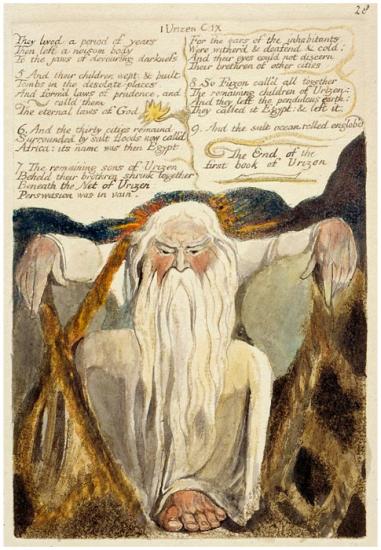 28
1 Urizen C: IX
They lived a period of years
Then left a noisom body
To the jaws of devouring darkness
5 And their children wept, & built
Tombs in the desolate places,
And form'd laws of prudence, and
call'd them
The eternal laws of God
6. And the thirty cities remaind
Surrounded by salt floods now call'd
Africa: its name was then Egypt
7 The remaining sons of Urizen
Beheld their brethren shrink together
Beneath the Net of Urizen
Perswasion was in vain
For the ears of the inhabitants
Were wither'd & deafen'd & cold:
And their eyes could not discern
Their brethren of other cities.
8 So Fuzon call'd all together
The remaining children of Urizen:
And they left the pendulous earth:
They called it Egypt, & left it.
9. And the salt ocean rolled englob'd
The End of the
first book of Urizen